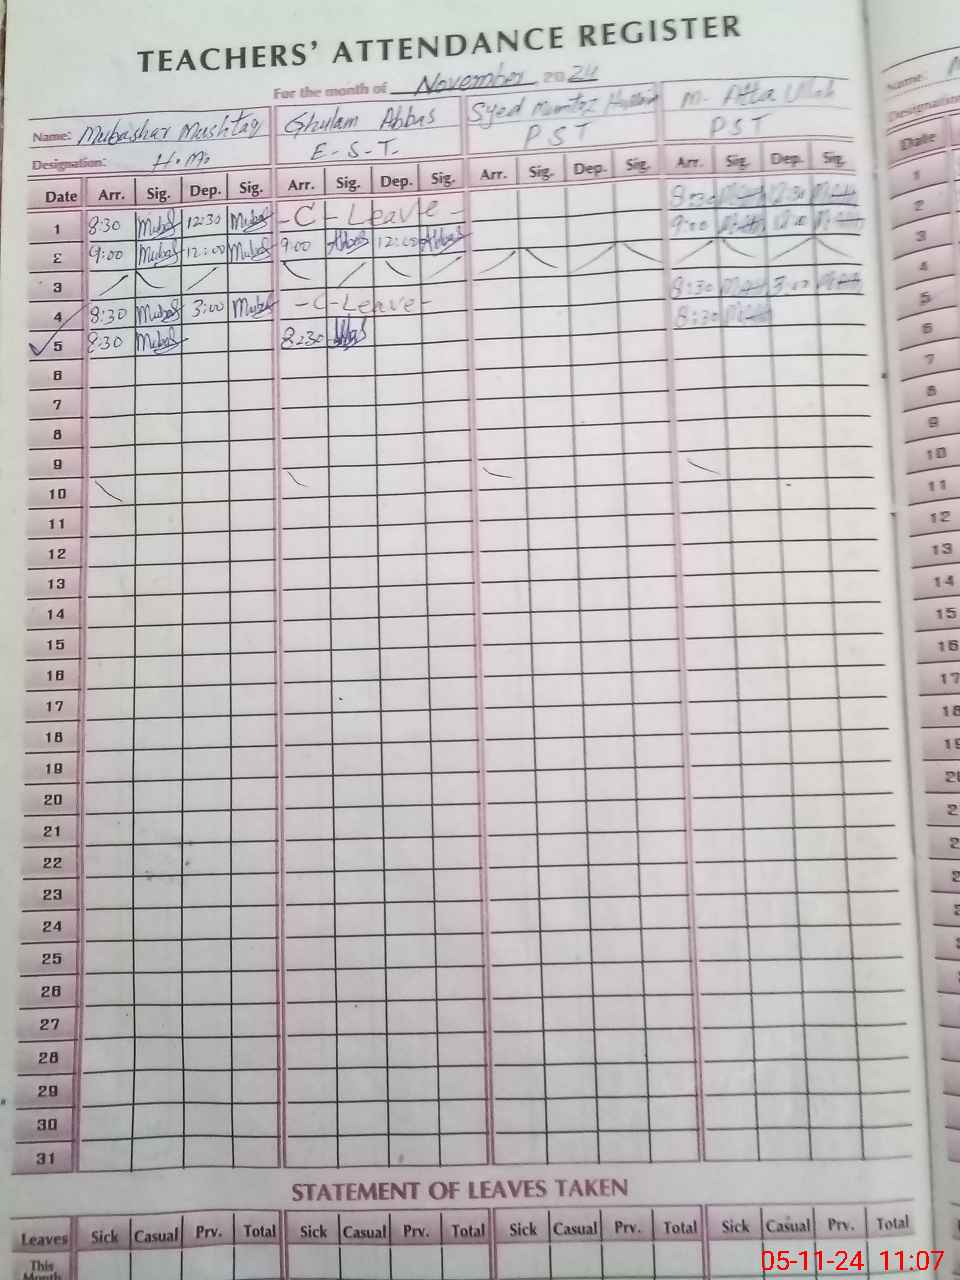 TEACHERS' ATTENDANCE REGISTER
For the month of November 2024
Name: Mubashar Mushtaq Ghulam Abbas Syed Mumtaz Hussain M. Atta Ullah
Designation: H.M. E-S-T. PST PST
Date Arr. Sig. Dep. Sig. Arr. Sig. Dep. Sig. Arr. Sig. Dep. Sig. Arr. Sig. Dep. Sig.
1 8:30 Mubas 12:30 Mubas - C - Leave - 8:30 12:30
2 9:00 Mubas 12:00 Mubas 9:00 Abbas 12:00 Abbas 9:00 12:00
3
4 8:30 Mubas 3:00 Mubas - C - Leave - 8:30 3:00
5 8:30 Mubas 8:30 Abbas 8:30
6
7
8
9
10
11
12
13
14
15
16
17
18
19
20
21
22
23
24
25
26
27
28
29
30
31
STATEMENT OF LEAVES TAKEN
Leaves Sick Casual Prv. Total Sick Casual Prv. Total Sick Casual Prv. Total Sick Casual Prv. Total
This
Month
Name:
Designation
Date
1
2
3
4
5
6
7
8
9
10
11
12
13
14
15
16
17
18
05-11-24 11:07